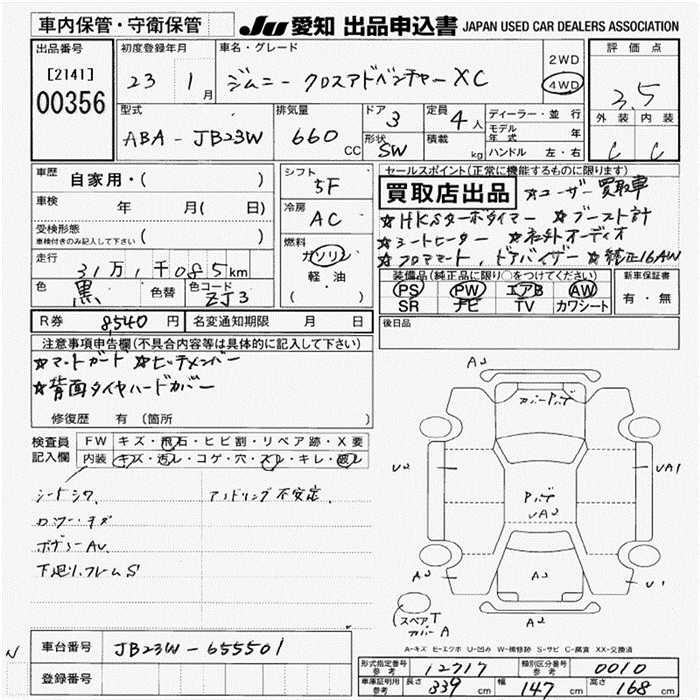 車内保管・守衛保管
JU 愛知 出品申込書 JAPAN USED CAR DEALERS ASSOCIATION
出品番号
[2141]
00356
初度登録年月
23 1月
車名・グレード
ジムニー クロスアドベンチャーXC
2WD
4WD
評価点
3.5
外装 内装
C C
型式
ABA-JB23W
排気量
660 CC
ドア
3
形状
SW
定員
4人
積載
kg
ディーラー・並行
モデル年式 年
ハンドル 左・右
車歴 自家用・( )
車検 年 月( 日)
受検形態
車検付きのみ記入して下さい ( )
走行
31万1千085km
色 黒 色替 色コード ZJ3
シフト
5F
冷房
AC
燃料
ガソリン
軽・油
( )
セールスポイント(正常に機能するものに限ります)
買取店出品 ☆ユーザー買取車
☆HKSターボタイマー ☆ブースト計
☆シートヒーター ☆社外オーディオ
☆フロアマート、ドアバイザー ☆純正16AW
装備品(純正品に限り○をつけてください)
PS PW エアB AW
SR ナビ TV カワシート
新車保証書
有・無
R券 8540円 名変通知期限 月 日
後日品
注意事項申告欄(不具合内容等は具体的に記入して下さい)
☆マットガード ☆ヒッチメンバー
☆背面タイヤハードカバー
修復歴 有 (箇所 )
検査員
記入欄
FW キズ・飛石・ヒビ割・リペア跡・X要
内装 キズ・汚レ・コゲ・穴・スレ・キレ・破レ
シートシワ アンドリング不安定
ボデーAU
下廻リ、フレームS
A2
カバーPナゲ
U2
UA1
Pナゲ
UA2
A2
A2
U1
A2
スペアT
カバーA
A-キズ E-エクボ U-凹み W-補修跡 S-サビ C-腐食 XX-交換済
N
車台番号 JB23W-655501
登録番号
形式指定番号
参考
12717
類別区分番号
参考
0010
車庫証明用
参考
長さ 339cm 幅 147cm 高さ 168cm